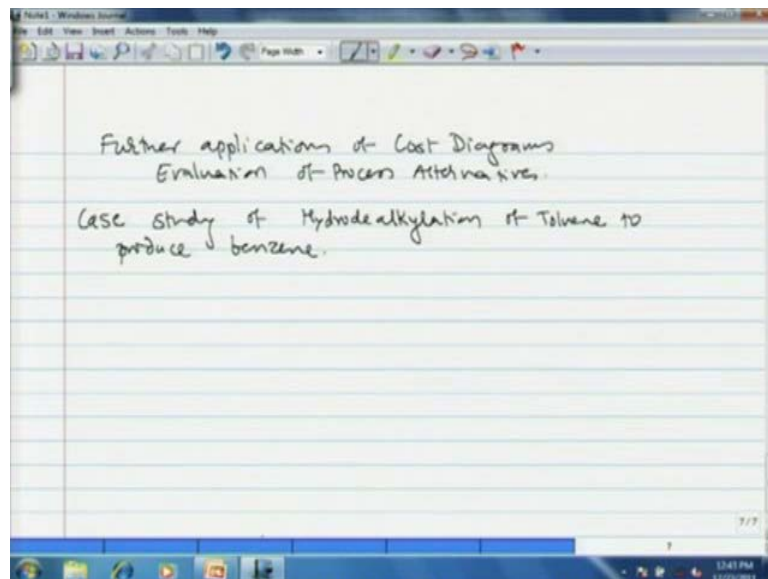 Note1 - Windows Journal
File Edit View Insert Actions Tools Help
Page Width
Further applications of Cost Diagrams
Evaluation of Process Alternatives.
Case study of Hydrodealkylation of Toluene to
produce benzene.
7/7
7
12:43 PM